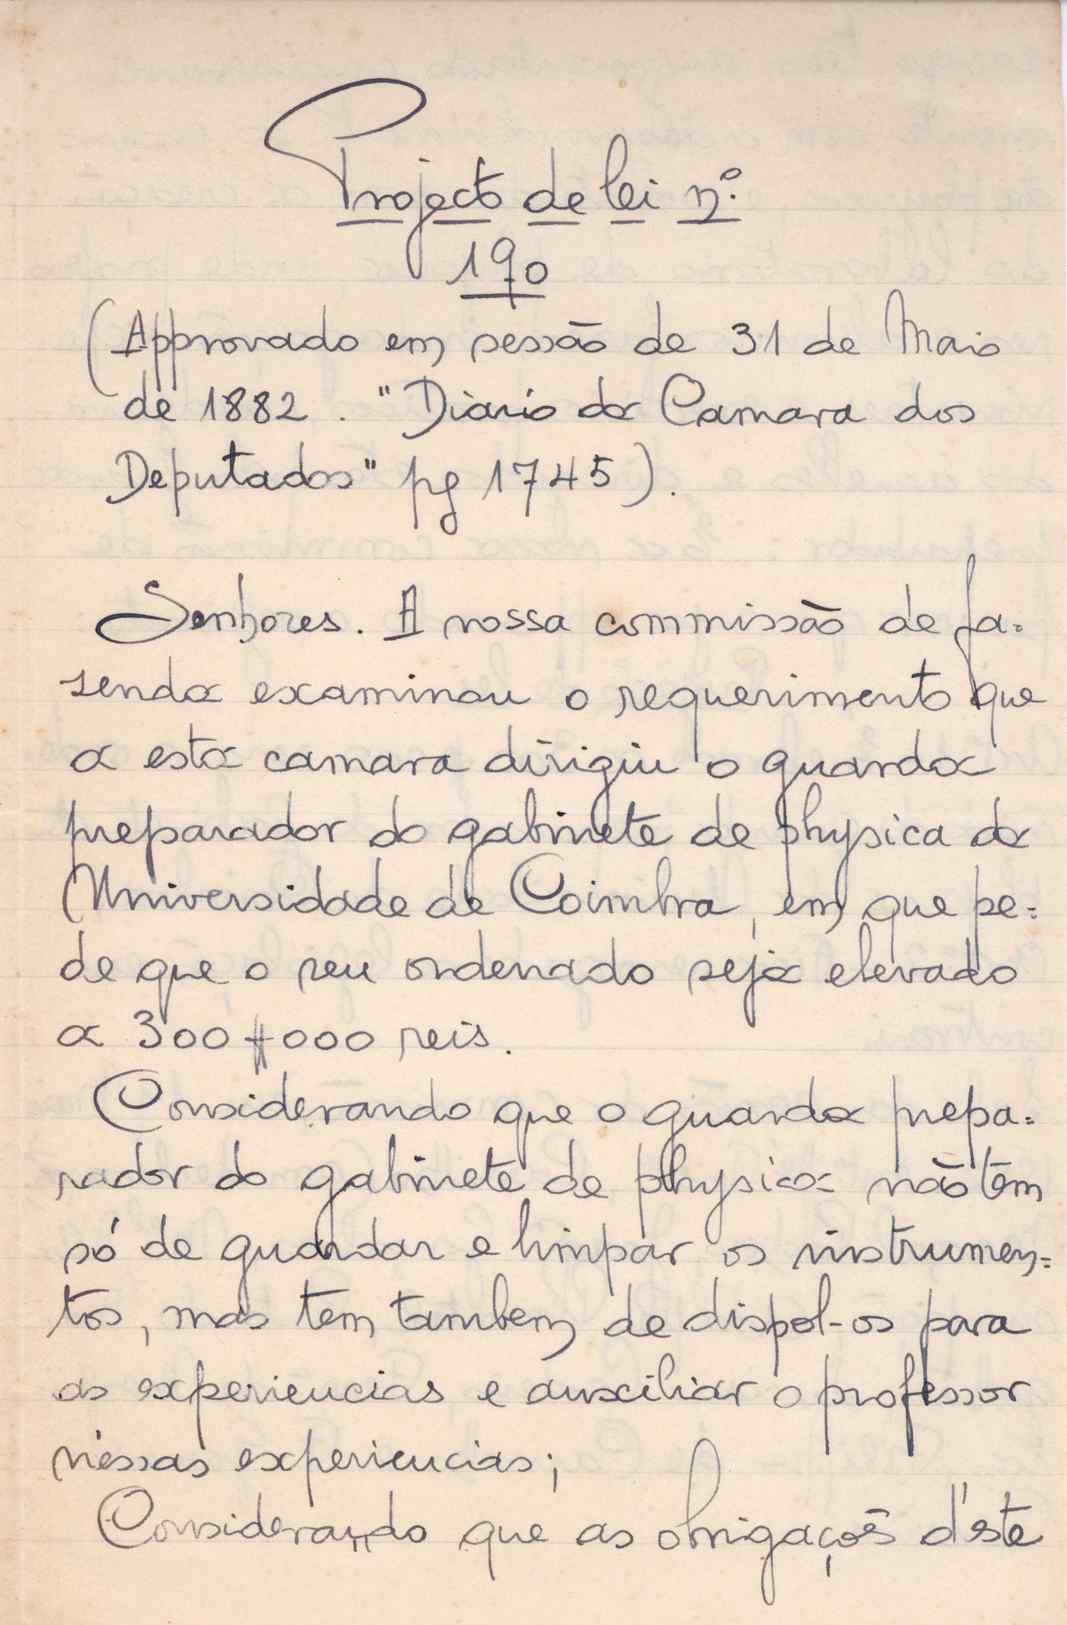 Projecto de lei nº.
190
(Approvado em sessão de 31 de Maio
de 1882. "Diario da Camara dos
Deputados" pg 1745).
Senhores. A nossa commissão de fa=
senda examinou o requerimento que
a esta camara dirigiu o guarda
preparador do gabinete de physica da
Universidade de Coimbra, em que pe=
de que o seu ordenado seja elevado
a 300$000 reis.
Considerando que o guarda prepa=
rador do gabinete de physica não têm
só de guardar e limpar os instrumen=
tos, mas tem tambem de dispol-os para
as experiencias e auxiliar o professor
n'essas experiencias;
Considerando que as obrigações d'este